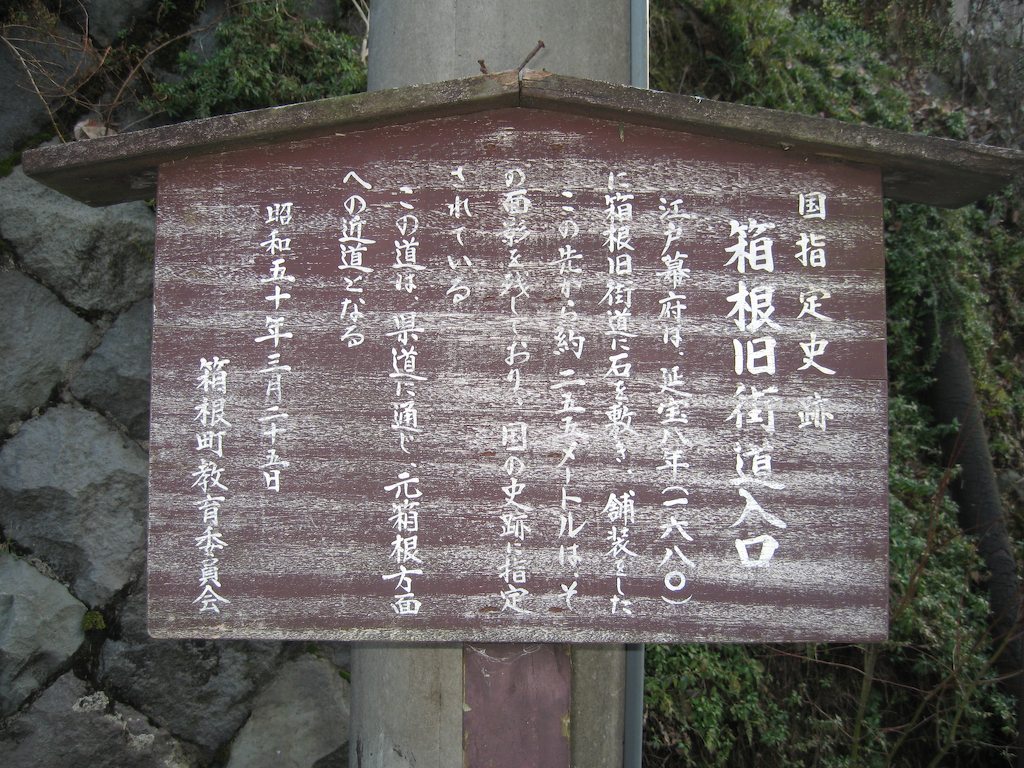 国指定史跡
箱根旧街道入口
江戸幕府は、延宝八年(一六八〇)
に箱根旧街道に石を敷き、舗装をした
この先から約二五五メートルは、そ
の面影を残しており、国の史跡に指定
されている
この道は、県道に通じ、元箱根方面
への近道となる
昭和五十年三月二十五日
箱根町教育委員会